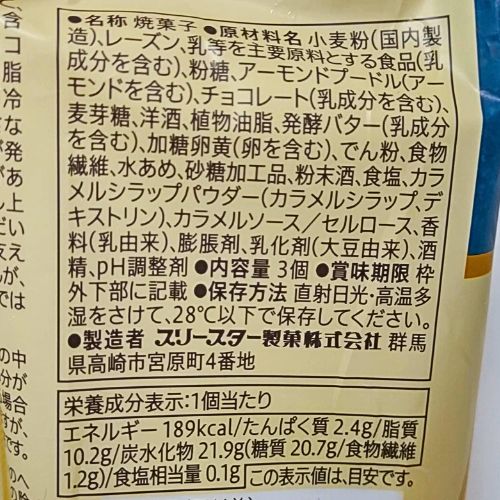 ●名称 焼菓子 ●原材料名 小麦粉(国内製
造)、レーズン、乳等を主要原料とする食品(乳
成分を含む)、粉糖、アーモンドプードル(アー
モンドを含む)、チョコレート(乳成分を含む)、
麦芽糖、洋酒、植物油脂、発酵バター(乳成分
を含む)、加糖卵黄(卵を含む)、でん粉、食物
繊維、水あめ、砂糖加工品、粉末酒、食塩、カラ
メルシラップパウダー(カラメルシラップ、デ
キストリン)、カラメルソース／セルロース、香
料(乳由来)、膨脹剤、乳化剤(大豆由来)、酒
精、pH調整剤 ●内容量 3個 ●賞味期限 枠
外下部に記載 ●保存方法 直射日光・高温多
湿をさけて、28℃以下で保存してください。
●製造者 スリースター製菓株式会社 群馬
県高崎市宮原町4番地
栄養成分表示:1個当たり
エネルギー 189kcal/たんぱく質 2.4g/脂質
10.2g/炭水化物 21.9g(糖質 20.7g/食物繊維
1.2g)/食塩相当量 0.1g この表示値は、目安です。